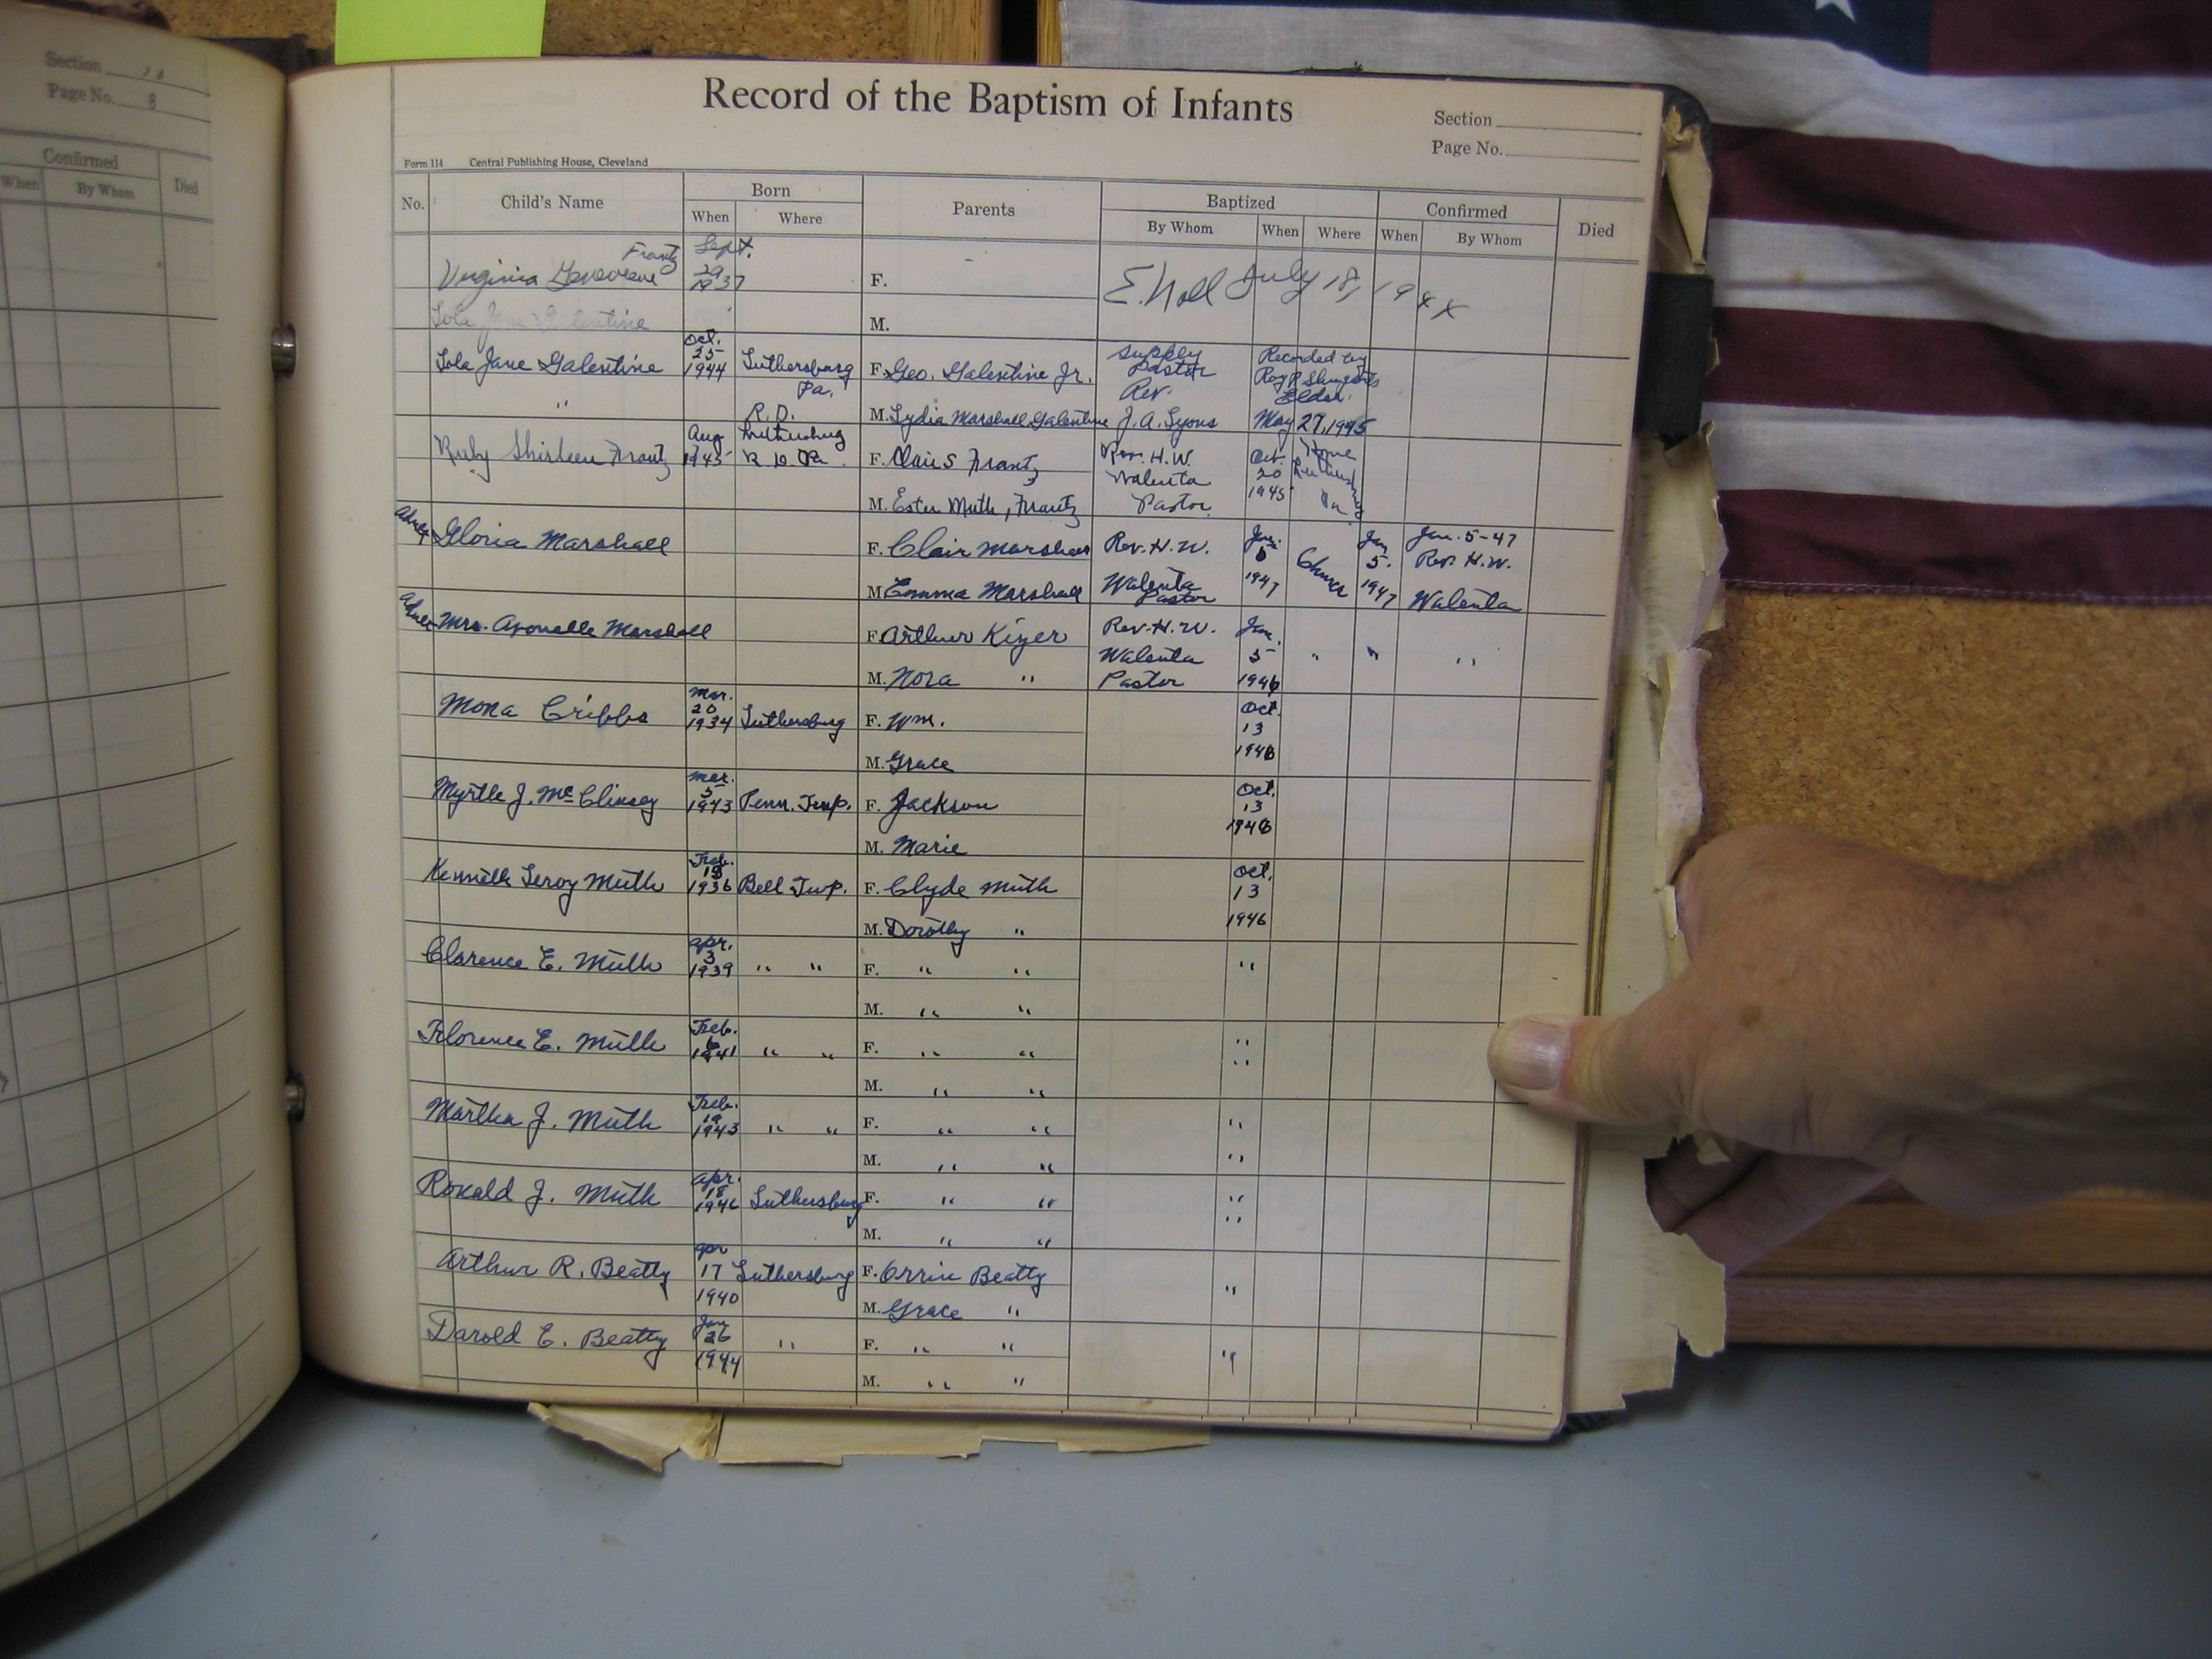 Section
Page No. 8
Confirmed
When By Whom Died
Record of the Baptism of Infants
Section
Page No.
Form 114 Central Publishing House, Cleveland
No. Child's Name Born Parents Baptized Confirmed Died
When Where By Whom When Where When By Whom
Frantz Sept.
Virginia 29 1937 F. E. Noll July 18, 1944
Lola Jane Galentine M.
Oct.
25
Lola Jane Galentine 1944 Luthersburg Pa. F. Geo. Galentine Jr. Supply Pastor Rev. Recorded by Roy P. Elder.
" R.D. M. Lydia Marshall Galentine J. A. Lyons May 27, 1945
Ruby Shirleen Frantz Aug 1945 Luthersburg R.D. Pa. F. Clair S Frantz Rev. H. W. Walenta Oct. 20 1945 Home
M. Ester Muth, Frantz Pastor
Gloria Marshall F. Clair Marshall Rev. H. W. Jan. 5 1947 Church Jan 5. 1947 Jan. 5-47 Rev. H. W.
M. Emma Marshall Walenta Pastor Walenta
Mrs. Avonelle Marshall F. Arthur Kizer Rev. H. W. Jan. 5 " " "
Walenta
M. Nora " Pastor 1946
Mona Cribbs Mar. 20 1934 Luthersburg F. Wm. Oct. 13 1946
M. Grace
Myrtle J. Mar. 5 1943 Penn. Twp. F. Jackson Oct. 13 1946
M. Marie
Kenneth Leroy Muth Feb. 1936 Bell Twp. F. Clyde Muth Oct. 13 1946
M. Dorothy "
Clarence E. Muth Apr. 3 1939 " " F. " " "
M. " "
Florence E. Muth Feb. 6 1941 " " F. " " " "
M. " "
Martha J. Muth Feb. 19 1943 " " F. " " "
M. " " "
Ronald J. Muth Apr. 18 1946 Luthersburg F. " " " "
M. " "
Arthur R. Beatty Apr 17 1940 Luthersburg F. Orrin Beatty "
M. Grace "
Darold E. Beatty Jan 26 1944 " F. " " "
M. " "